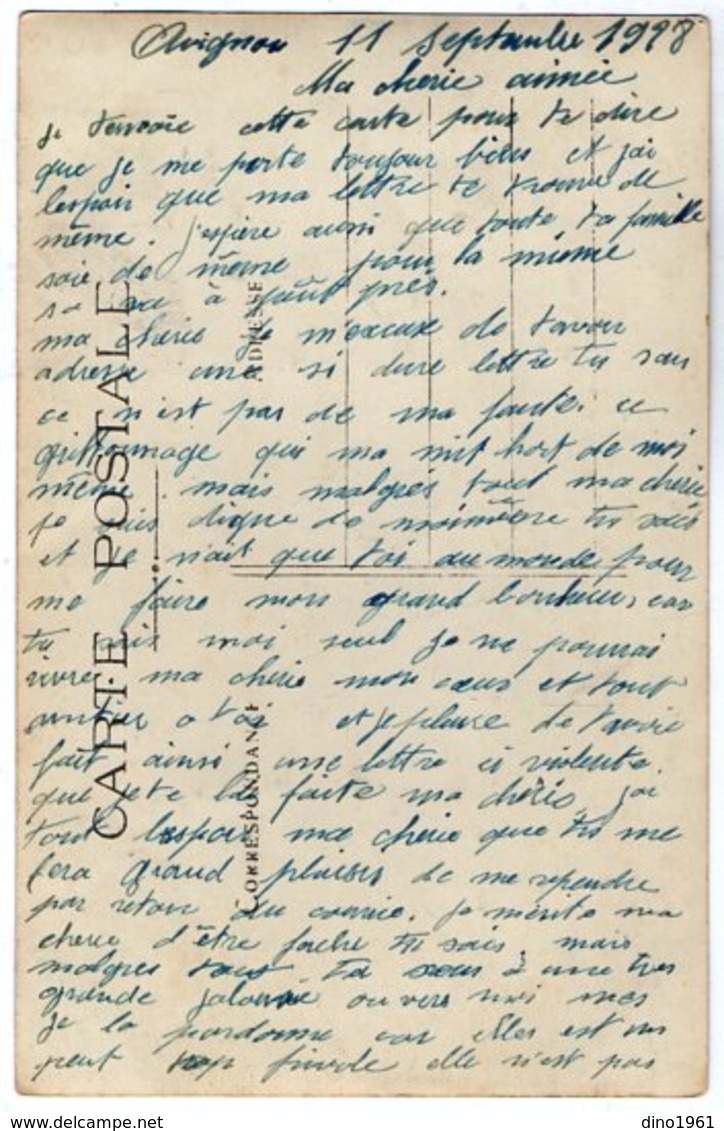 Avignon 11 Septembre 1928
Ma cherie aimée
je tenvoie cette carte pour te dire
que je me porte toujour bien et jai
lespoir que ma lettre te trouve de
même. j'espère aussi que toute ta famille
soie de même pour la même
à peut près.
ma cherie je m'excuse de tavoir
adresse une si dure lettre tu sais
ce n'est pas de ma faute. ce
grifounage qui ma mit hort de moi
même. mais malgres tout ma cherie
je suis digne de moimême tu sais
et je n'ait que toi au monde pour
me faire mon grand bonheur, car
tu sais moi seul je ne pourrai
vivre ma cherie mon coeus et tout
entier a toi et je pleure de tavoir
fait ainsi une lettre si violente.
que je te lai faite ma cherie, jai
tout lespoir ma cherie que tu me
fera grand plaisir de me repondre
par retour du courrie. je mérite ma
cherie d'être fachee tu sais. mais
malgres tout ta soeur à une tres
grande jalousie ouvers moi mes
je la pardonne car elles est un
peut trop frivole elle n'est pas
CARTE POSTALE
CORRESPONDANCE
ADRESSE
dino1961